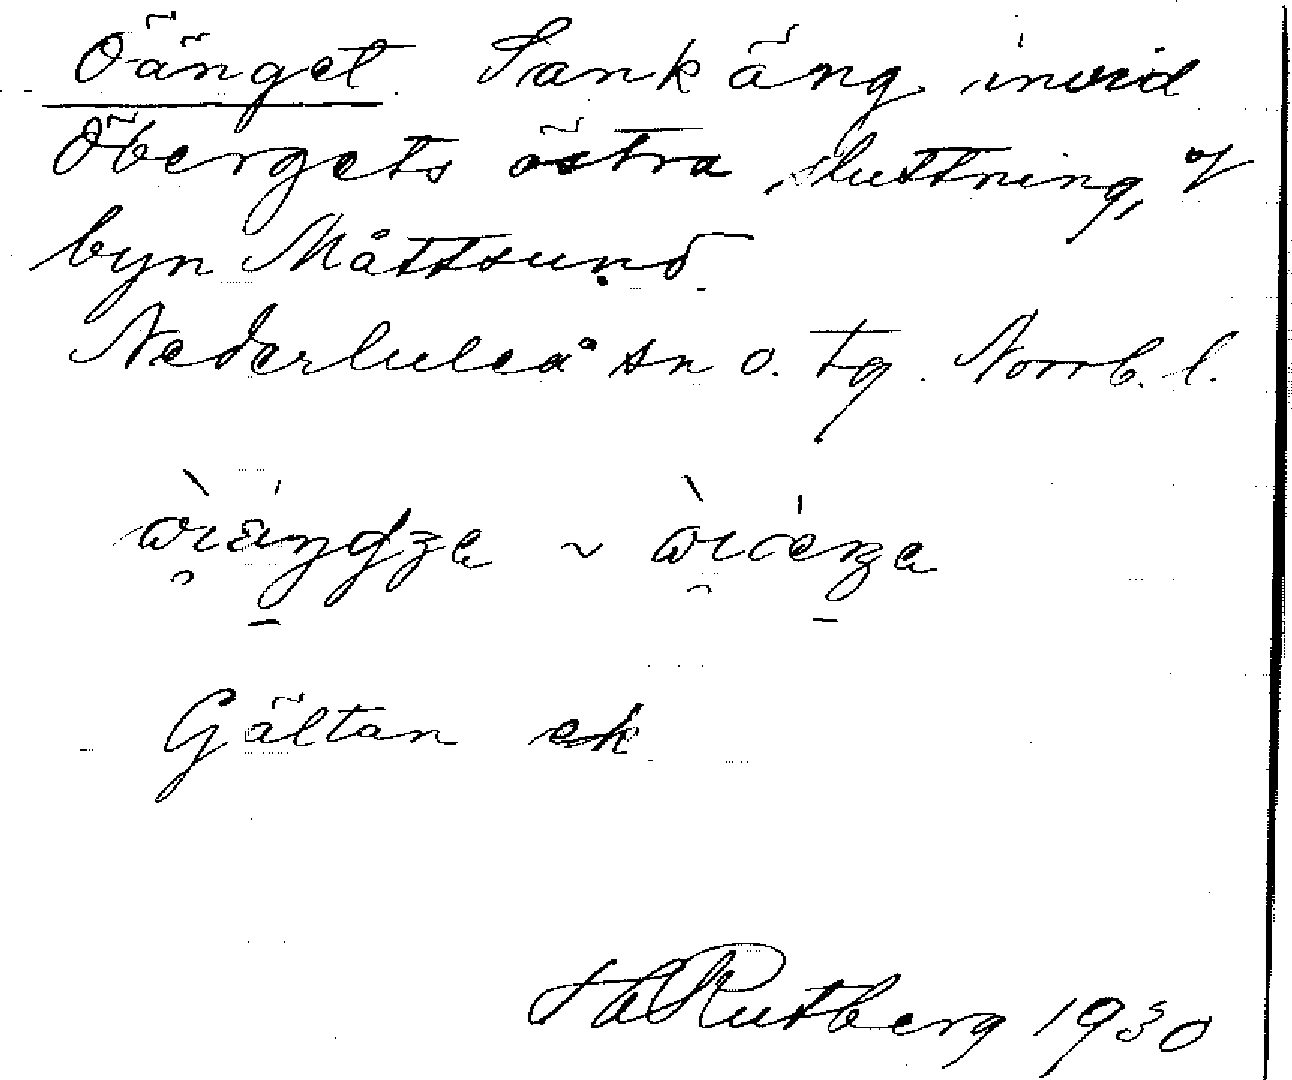 Öänget Sank äng invid
Öbergets östra sluttning, of
byn Måttsund.
Nederluleå sn o. tg. Norrb. l.
Gältan ek
HARutberg 1930